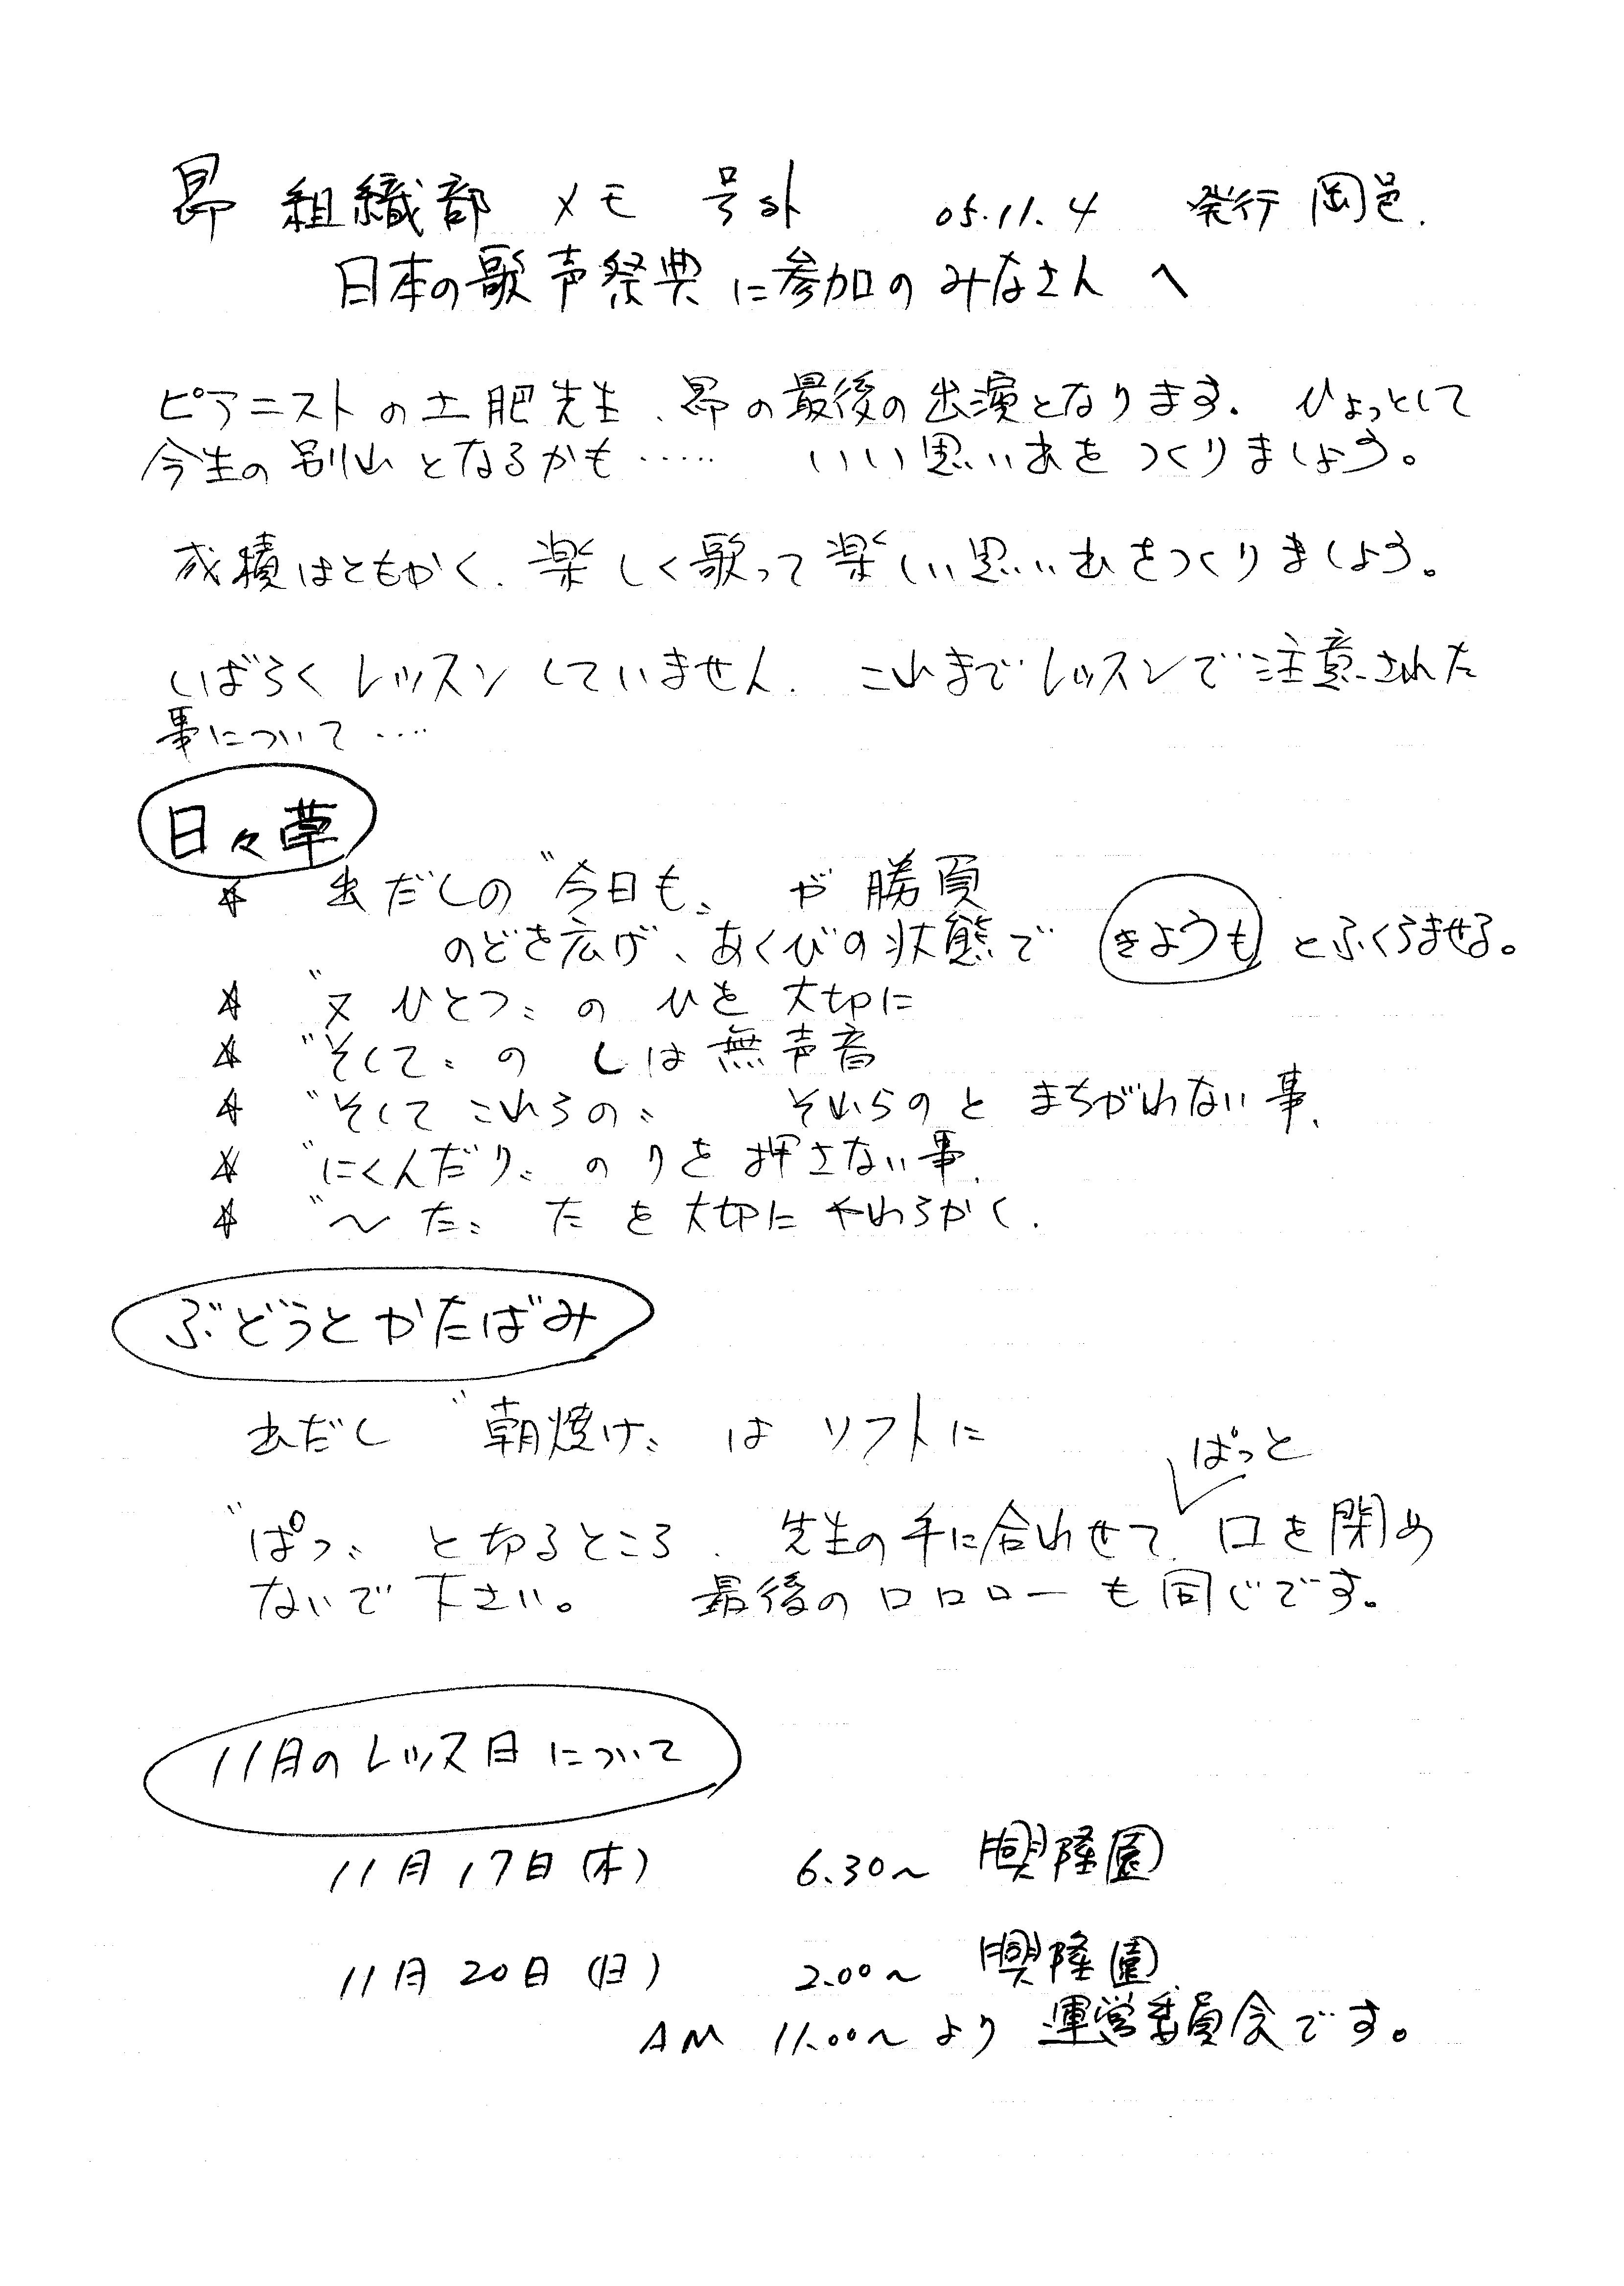 昴 組織部 メモ 号外 05.11.4 発行 岡邑.
日本の歌声祭典に参加のみなさんへ
ピアニストの土肥先生、昴の最後の出演となります. ひょっとして
今生の別れとなるかも‥‥‥ いい思い出をつくりましょう。
成績はともかく、楽しく歌って楽しい思い出をつくりましょう。
しばらくレッスンしていません. これまでレッスンで注意された
事について‥‥
日々草
☆ 出だしの〝今日も〟 が 勝負
のどを広げ、あくびの状態で きょうも とふくらませる。
☆ 〝又 ひとつ〟の ひを 大切に
☆ 〝そして〟の しは 無声音
☆ 〝そして これらの〟 それらのと まちがわない事、
☆ 〝にくんだり〟の りを 押さない事、
☆ 〝〜た〟 た を 大切に やわらかく.
ぶどうとかたばみ
出だし 〝朝焼け〟 は ソフトに
ぱっと
〝ぱっ〟 と切るところ. 先生の手に合わせて 口を閉め
ないで下さい。 最後のロロローも同じです。
11月のレッス日について
11月17日(木) 6.30〜 興隆園
11月20日(日) 2.00〜 興隆園
AM 11.00〜より 運営委員会です。